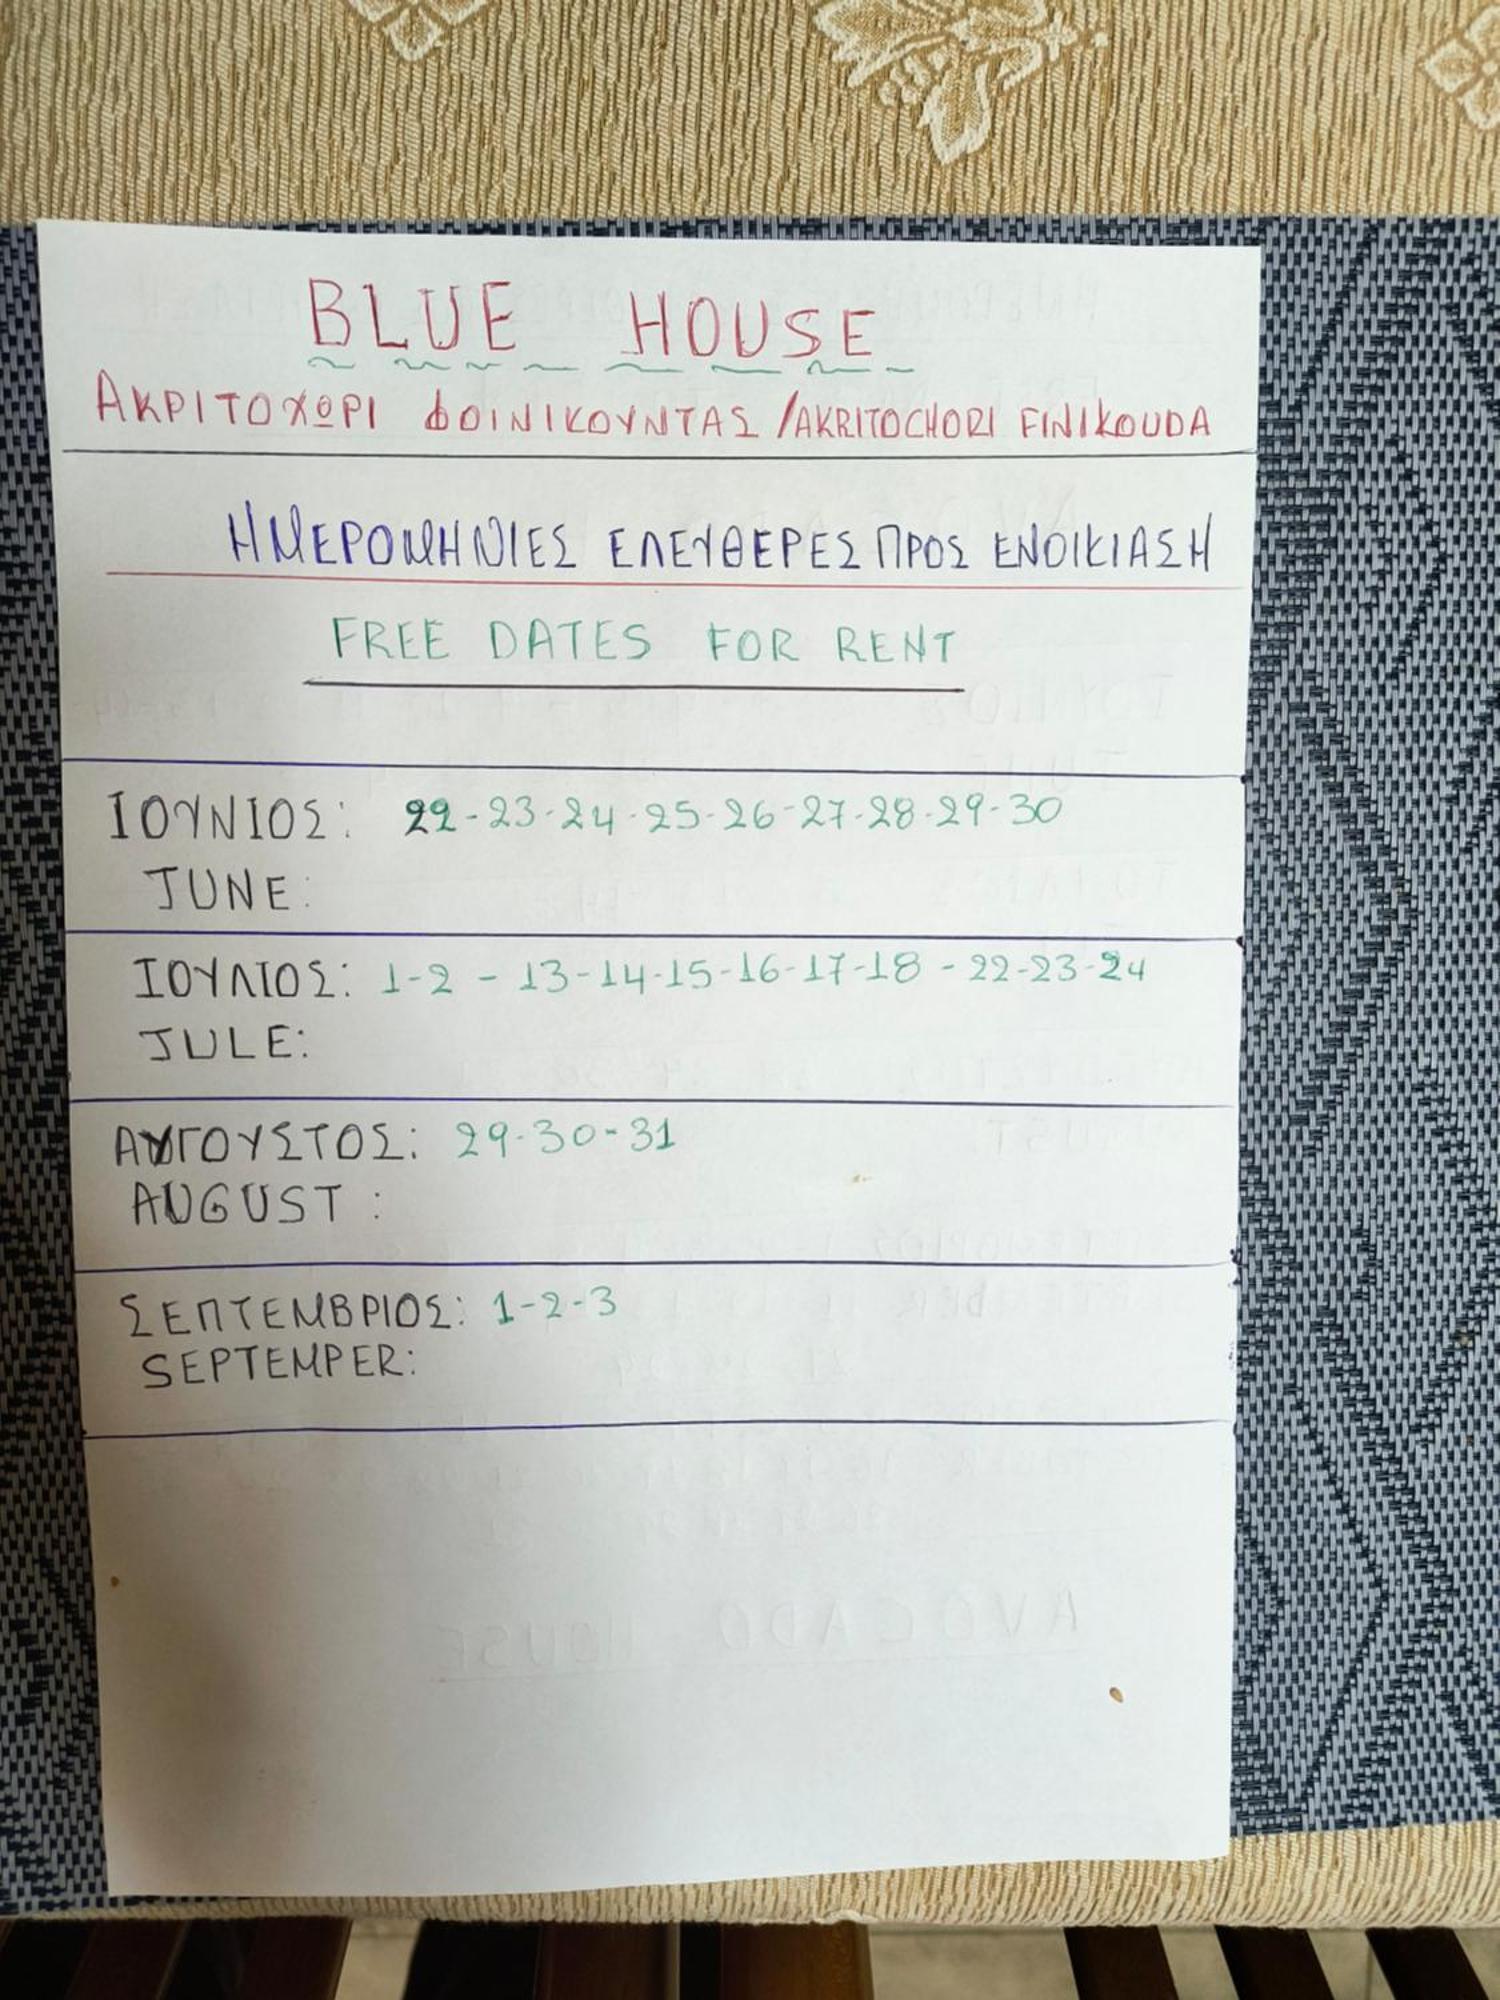 BLUE HOUSE
ΑΚΡΙΤΟΧΩΡΙ ΦΟΙΝΙΚΟΥΝΤΑΣ /AKRITOCHORI FINIKOUDA
ΗΜΕΡΟΜΗΝΙΕΣ ΕΛΕΥΘΕΡΕΣ ΠΡΟΣ ΕΝΟΙΚΙΑΣΗ
FREE DATES FOR RENT
ΙΟΥΝΙΟΣ: 22-23-24-25-26-27-28-29-30
JUNE:
ΙΟΥΛΙΟΣ: 1-2 - 13-14-15-16-17-18 - 22-23-24
JULE:
ΑΥΓΟΥΣΤΟΣ: 29-30-31
AUGUST :
ΣΕΠΤΕΜΒΡΙΟΣ: 1-2-3
SEPTEMPER:
AVOCADO HOUSE